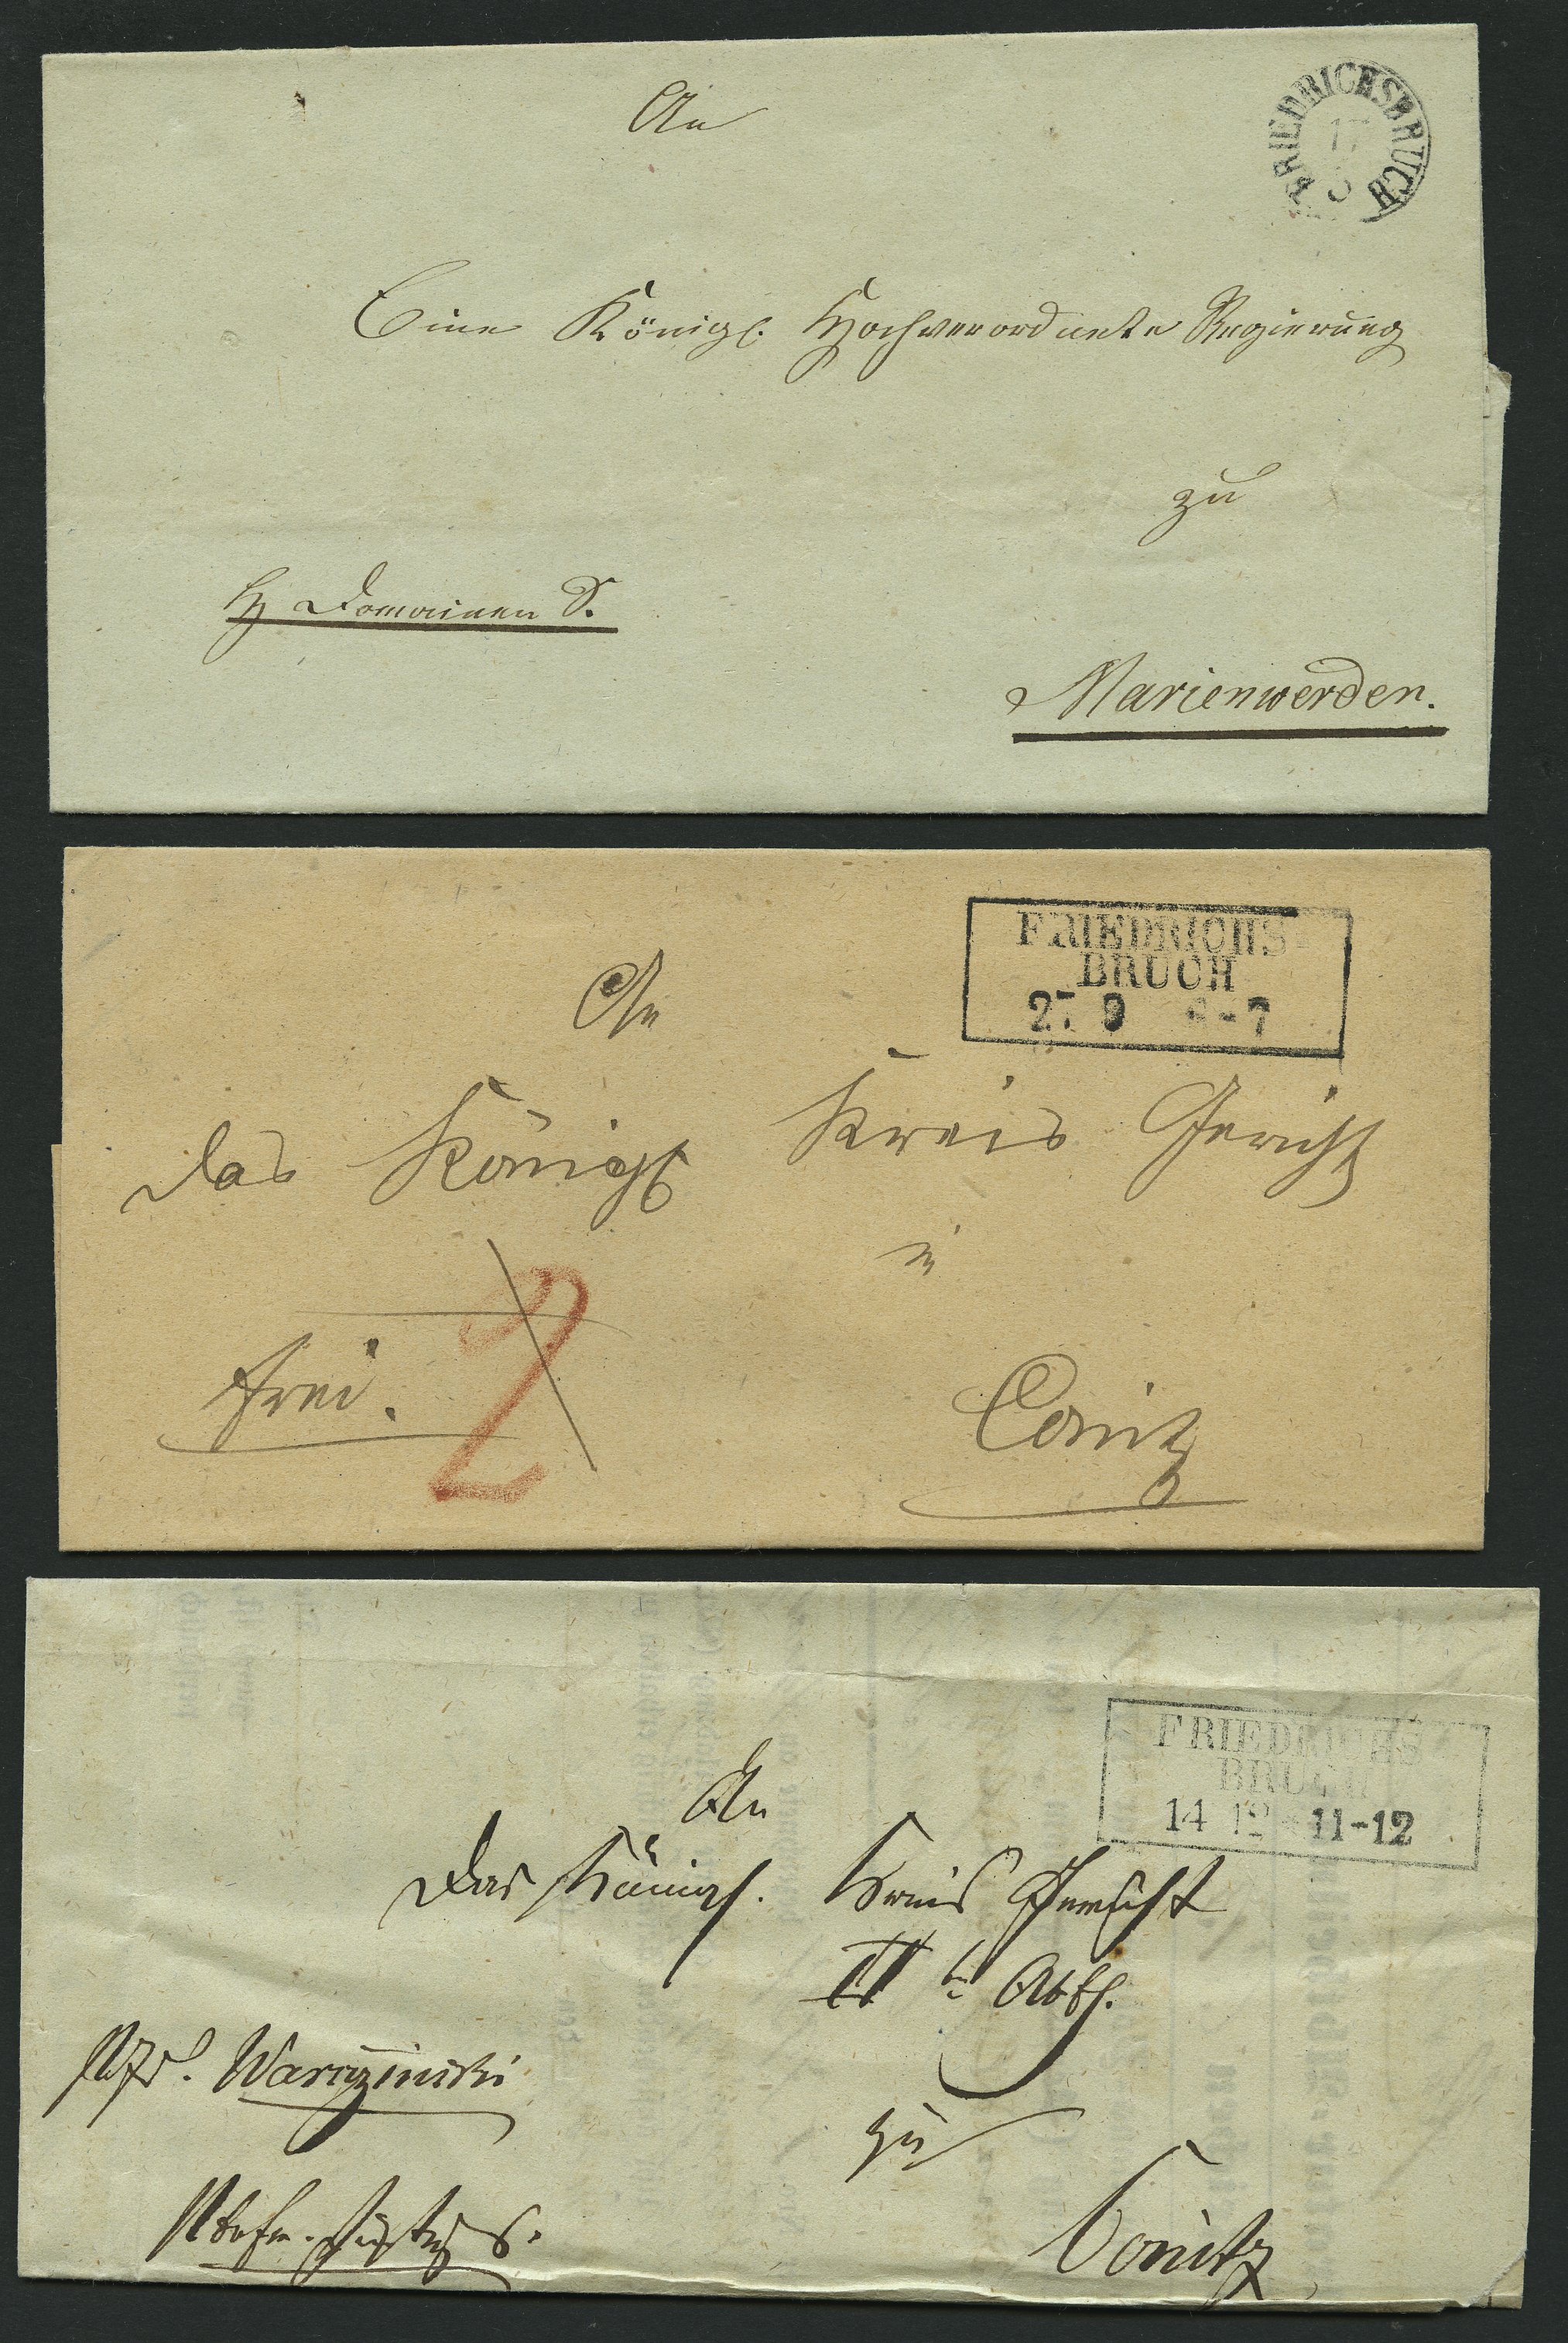 An
FRIEDRICHSBRUCH
17
Eine Königl. Hochverordnete Regierung
zu
Domainen S.
Marienwerder.
FRIEDRICHS
BRUCH
27 9 -7
An
das Königl Kreis Gericht
in
frei. 2
Conitz
FRIEDRICHS
BRUCH
14 12 11-12
An
Das Königl. Kreis Gericht
II Abth.
zu
Conitz